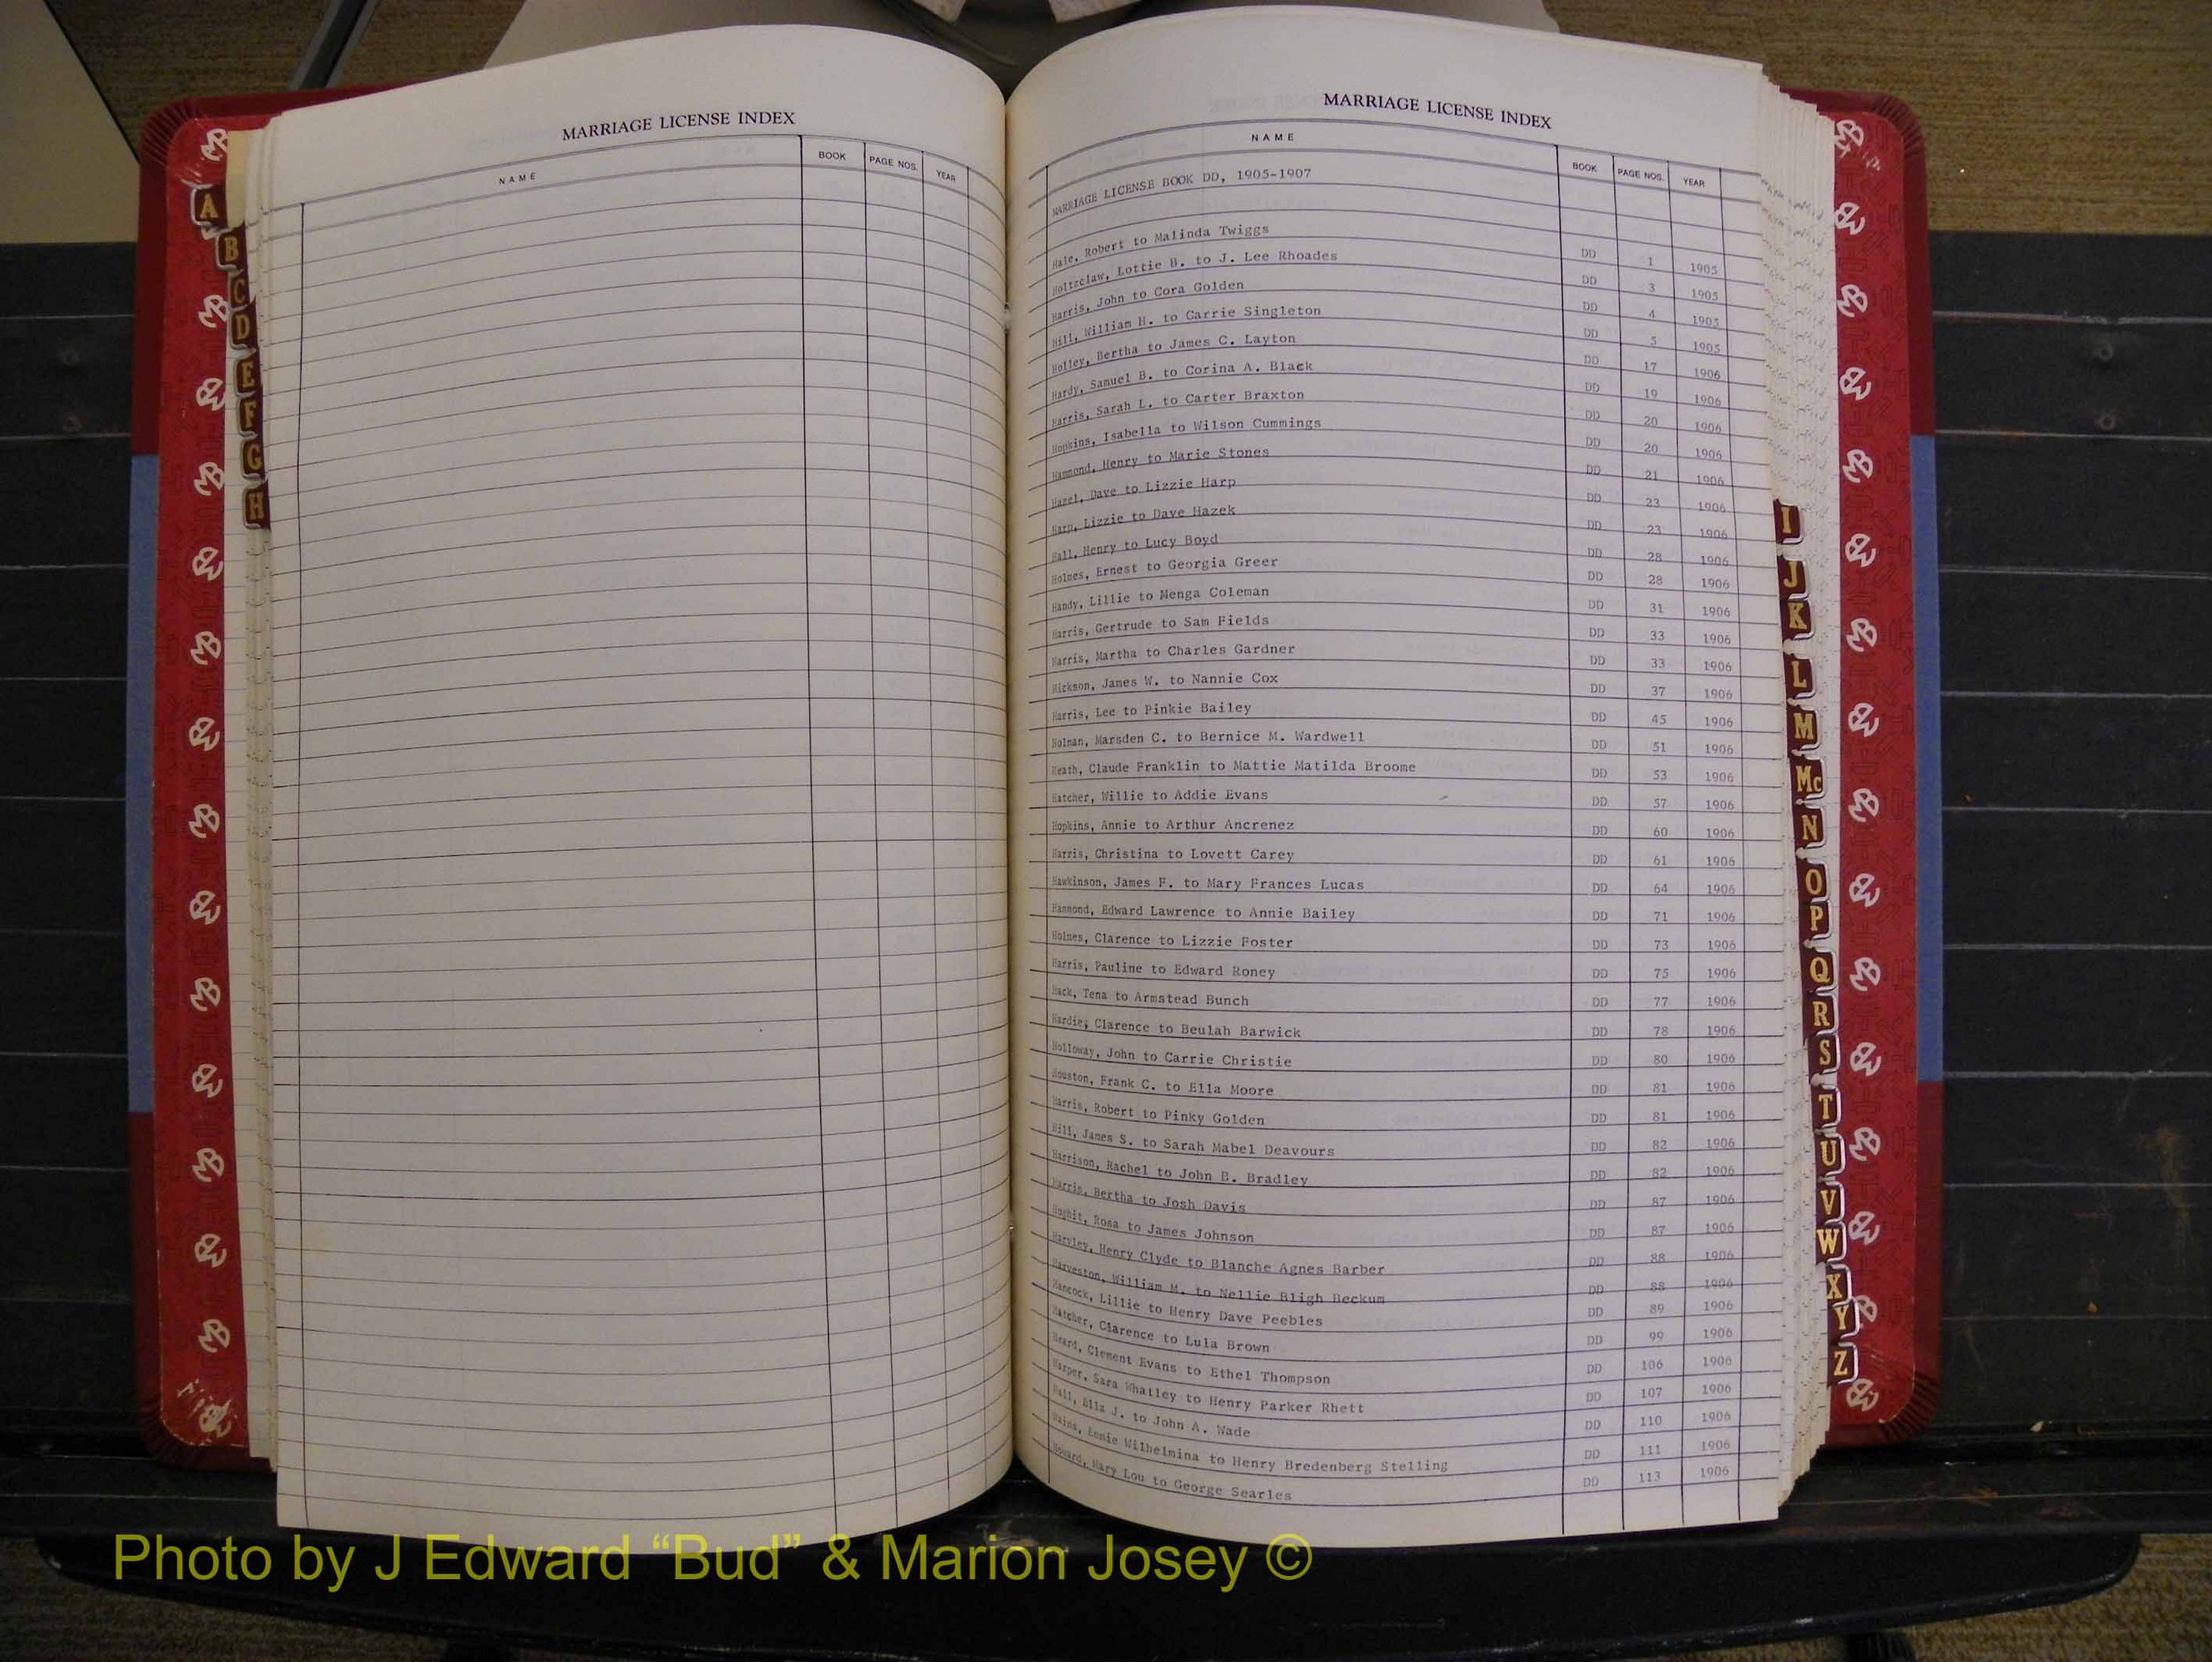 MARRIAGE LICENSE INDEX
NAME BOOK PAGE NOS. YEAR
MARRIAGE LICENSE INDEX
NAME BOOK PAGE NOS. YEAR
MARRIAGE LICENSE BOOK DD, 1905-1907
Hale, Robert to Malinda Twiggs DD 1 1905
Holtzclaw, Lottie B. to J. Lee Rhoades DD 3 1905
Harris, John to Cora Golden DD 4 1905
Hill, William H. to Carrie Singleton DD 5 1905
Holley, Bertha to James C. Layton DD 17 1906
Hardy, Samuel B. to Corina A. Black DD 19 1906
Harris, Sarah L. to Carter Braxton DD 20 1906
Hopkins, Isabella to Wilson Cummings DD 20 1906
Hammond, Henry to Marie Stones DD 21 1906
Hazel, Dave to Lizzie Harp DD 23 1906
Harp, Lizzie to Dave Hazek DD 23 1906
Hall, Henry to Lucy Boyd DD 28 1906
Holmes, Ernest to Georgia Greer DD 28 1906
Handy, Lillie to Menga Coleman DD 31 1906
Harris, Gertrude to Sam Fields DD 33 1906
Harris, Martha to Charles Gardner DD 33 1906
Hickson, James W. to Nannie Cox DD 37 1906
Harris, Lee to Pinkie Bailey DD 45 1906
Holman, Marsden C. to Bernice M. Wardwell DD 51 1906
Heath, Claude Franklin to Mattie Matilda Broome DD 53 1906
Hatcher, Willie to Addie Evans DD 57 1906
Hopkins, Annie to Arthur Ancrenez DD 60 1906
Harris, Christina to Lovett Carey DD 61 1906
Hawkinson, James F. to Mary Frances Lucas DD 64 1906
Hammond, Edward Lawrence to Annie Bailey DD 71 1906
Holmes, Clarence to Lizzie Foster DD 73 1906
Harris, Pauline to Edward Roney DD 75 1906
Hack, Tena to Armstead Bunch DD 77 1906
Hardie, Clarence to Beulah Barwick DD 78 1906
Holloway, John to Carrie Christie DD 80 1906
Houston, Frank C. to Ella Moore DD 81 1906
Harris, Robert to Pinky Golden DD 81 1906
Hill, James S. to Sarah Mabel Deavours DD 82 1906
Harrison, Rachel to John B. Bradley DD 82 1906
Harris, Bertha to Josh Davis DD 87 1906
Rosa to James Johnson DD 87 1906
Henry Clyde to Blanche Agnes Barber DD 88 1906
Harveston, William M. to Nellie Bligh Beckum DD 88 1906
Hancock, Lillie to Henry Dave Peebles DD 89 1906
Hatcher, Clarence to Lula Brown DD 99 1906
Heard, Clement Evans to Ethel Thompson DD 106 1906
Harper, Sara Whatley to Henry Parker Rhett DD 107 1906
Hall, Ella J. to John A. Wade DD 110 1906
Wilhelmina to Henry Bredenberg Stelling DD 111 1906
Howard, Mary Lou to George Searles DD 113 1906
A
B
C
D
E
F
G
H
I
J
K
L
M
Mc
N
O
P
Q
R
S
T
U
V
W
X
Y
Z
Photo by J Edward “Bud” & Marion Josey ©